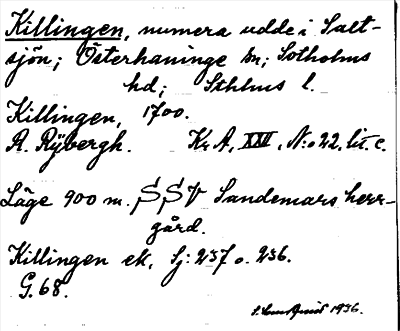 Killingen, numera udde i Salt-
sjön; Österhaninge sn; Sotholms
hd; Sthlms l.
Killingen, 1700.
A. Rÿbergh. Kr A, XXII, N:o 22. lit. c.
Läge 900 m. SSV Sandemars herr-
gård.
Killingen ek. Sj: 237 o. 236.
G. 68.
1936.